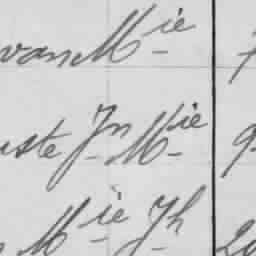 van Mie
uste Jn Mie
Mie Jh 20